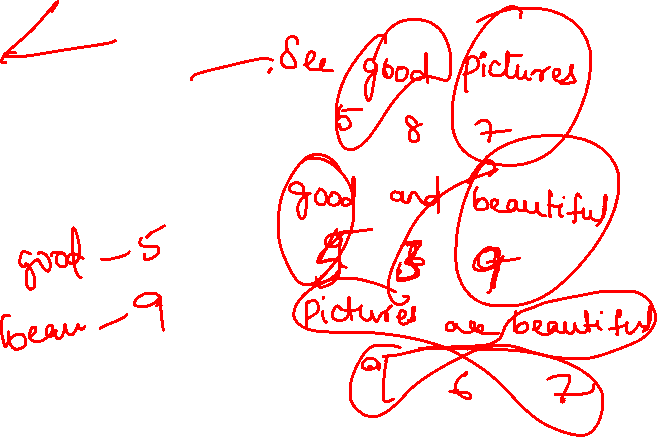 See good pictures
5 8 7
good and beautiful
5 3 9
good - 5
beau - 9
Pictures are beautiful
9 6 7